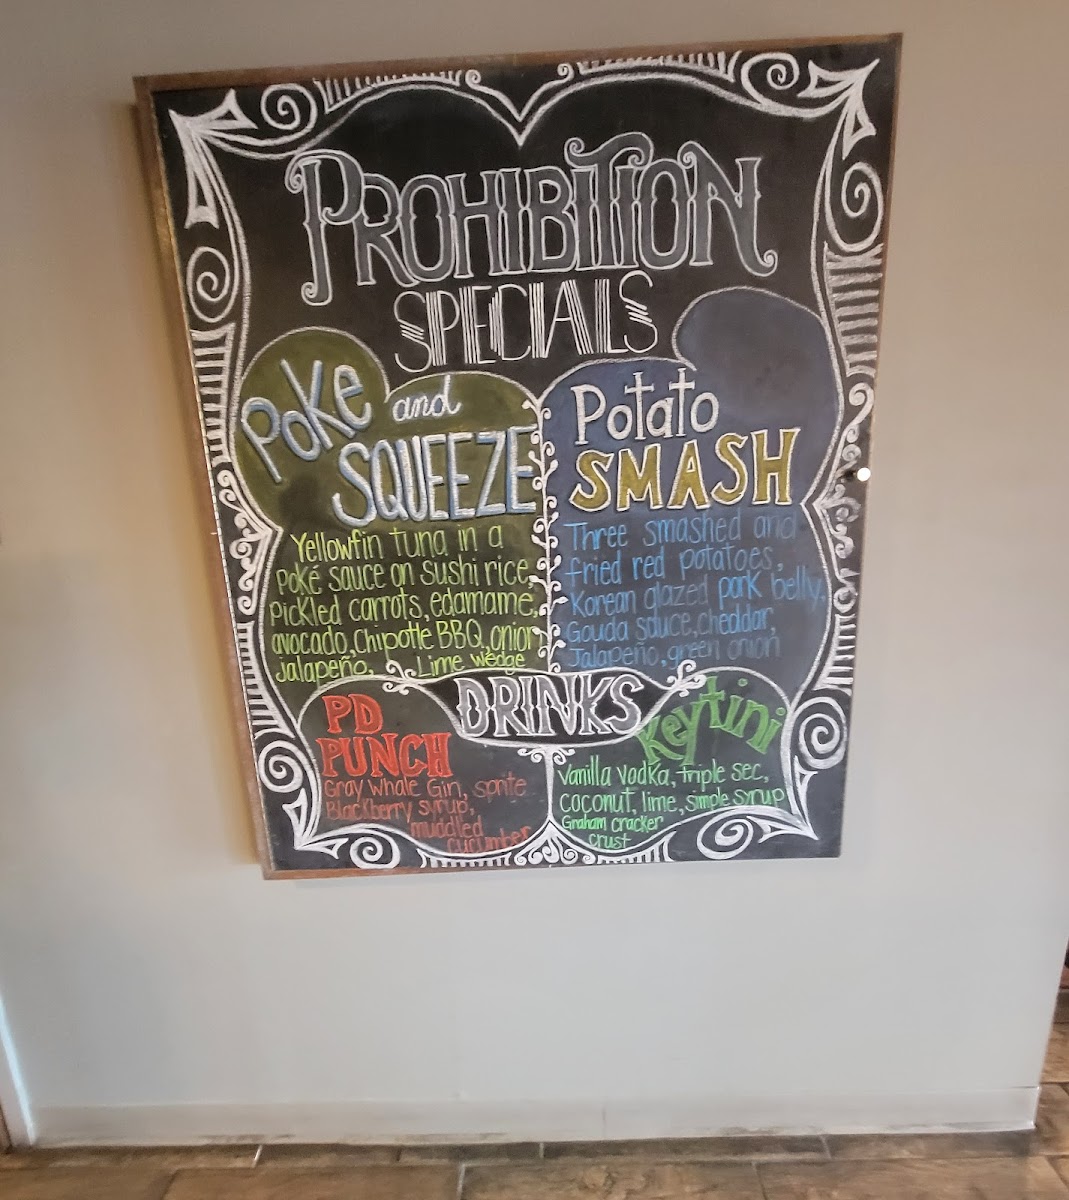 PROHIBITION
SPECIALS
Poke and
SQUEEZE
Yellowfin tuna in a
poké sauce on sushi rice,
pickled carrots, edamame,
avocado, Chipotle BBQ, onion,
jalapeño. Lime wedge
Potato
SMASH
Three smashed and
fried red potatoes,
Korean glazed pork belly,
Gouda sauce, cheddar,
Jalapeño, green onion
DRINKS
PD
PUNCH
Gray Whale Gin, sprite
Blackberry syrup,
muddled
cucumber
Keytini
Vanilla vodka, triple sec,
coconut, lime, simple syrup
Graham cracker
crust